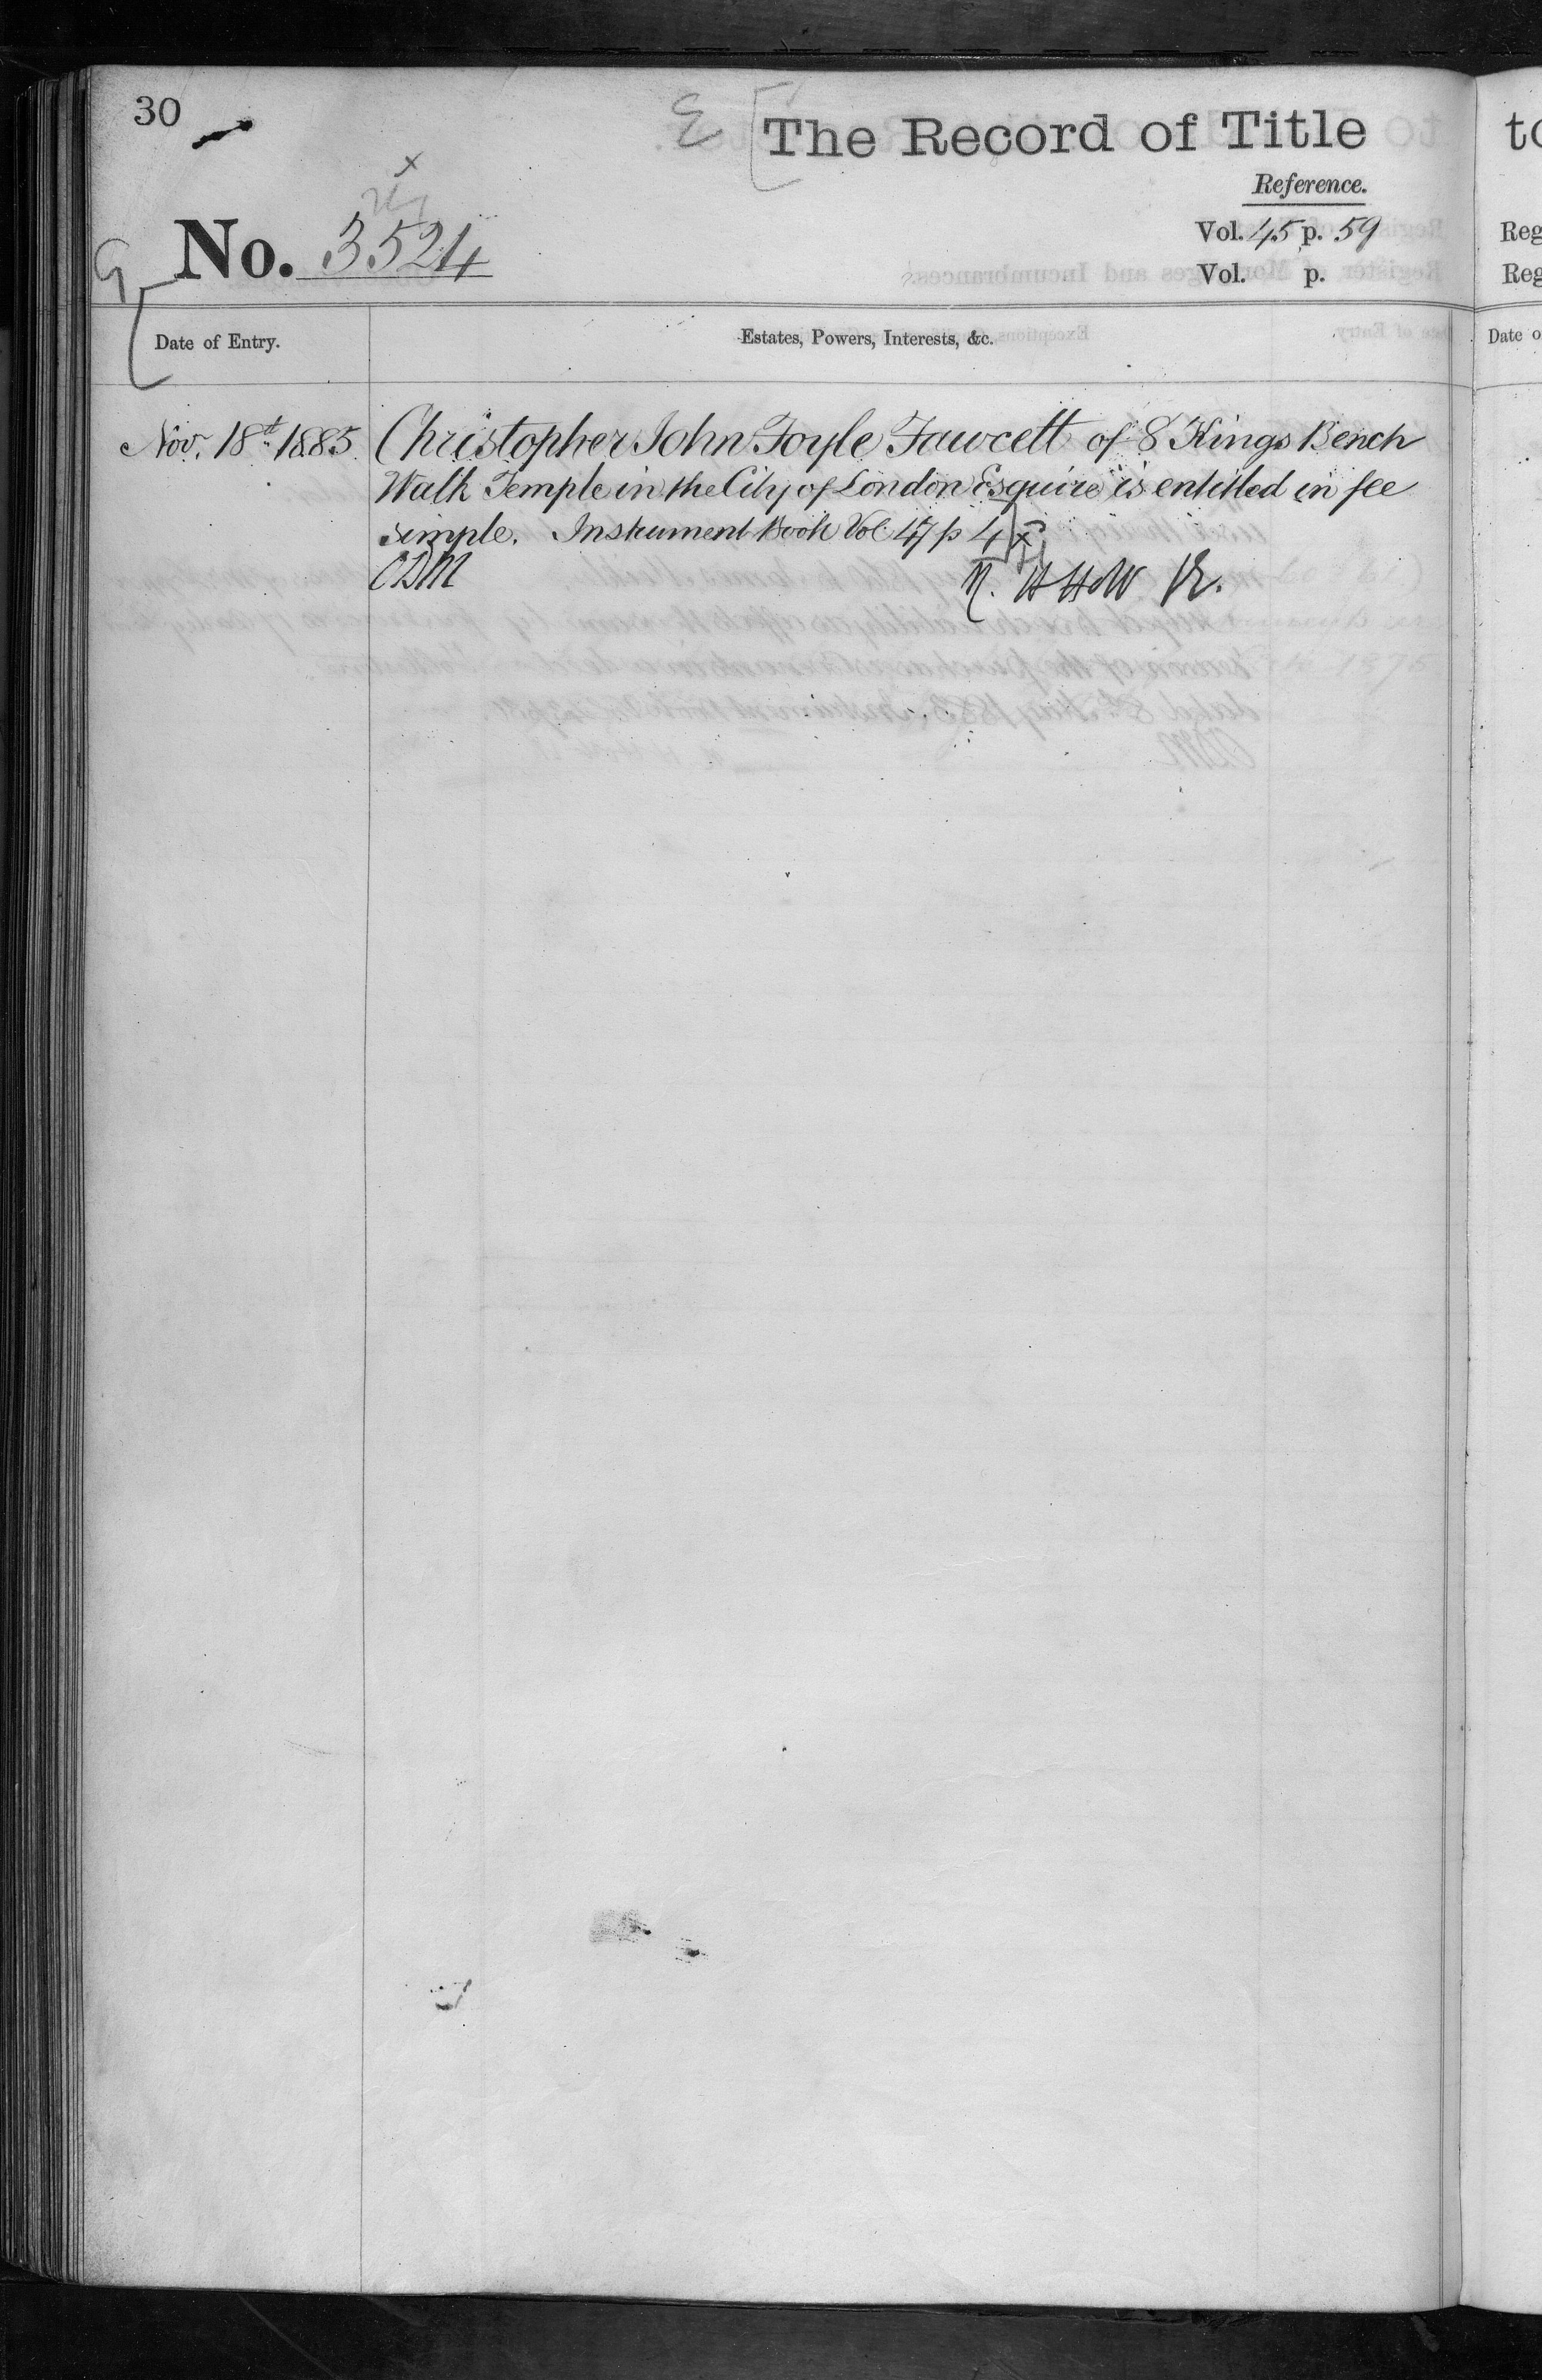 30
E
The Record of Title
Reference.
x
No. 3524
Vol. 45 p. 59
Vol. p.
G
Date of Entry.
Estates, Powers, Interests, &c.
Nov. 18th 1885
Christopher John Foyle Fawcett of 8 Kings Bench
Walk Temple in the City of London Esquire is entitled in fee
simple. Instrument Book Vol 47 p 4 x
CDM
to
Reg
Reg
Date o